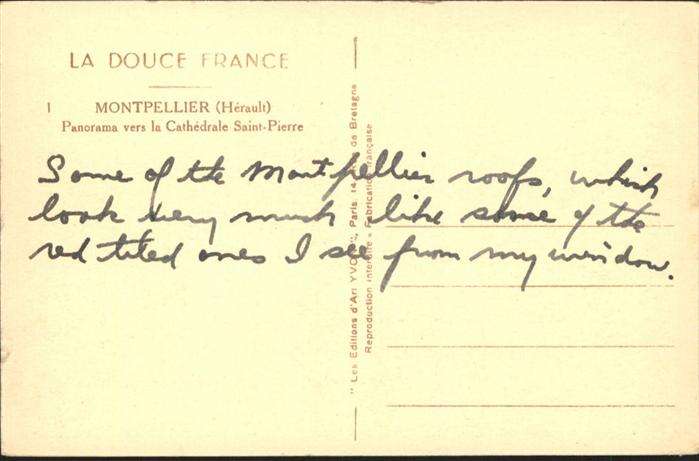 LA DOUCE FRANCE
1 MONTPELLIER (Hérault)
Panorama vers la Cathédrale Saint-Pierre
Some of the Montpellier roofs, which
look very much like some of the
red tiled ones I see from my window.
" Les Editions d'Art YVON", Paris, 14, de Bretagne
Reproduction interdite - Fabrication Française